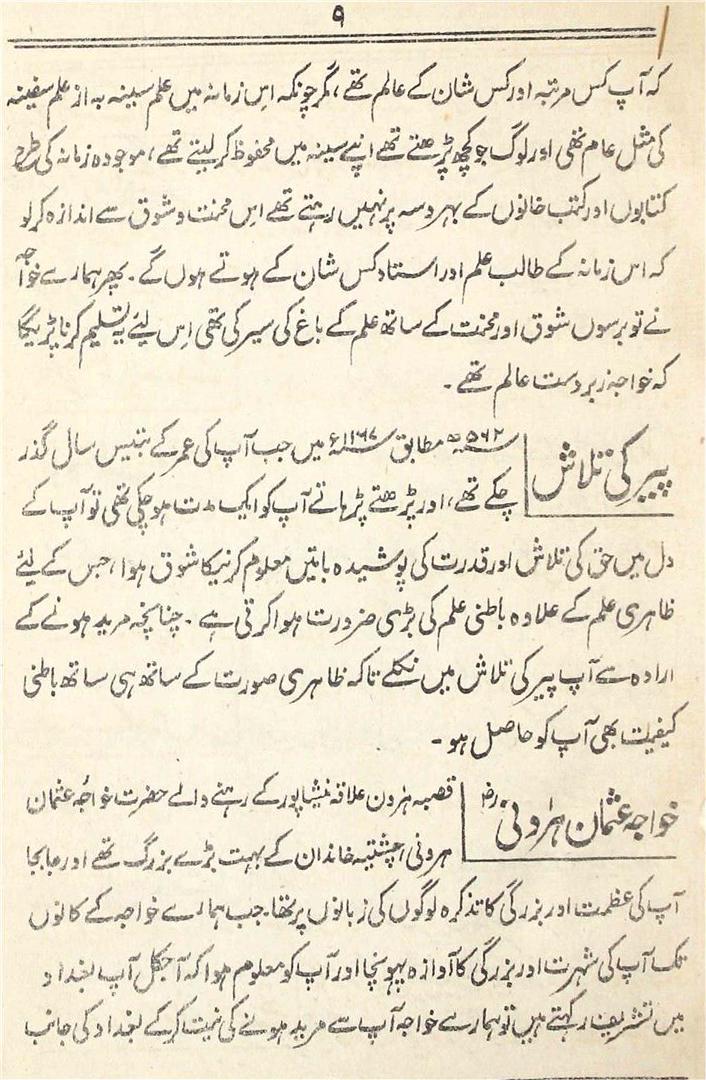 ۹
کہ آپ کس مرتبہ اور کس شان کے عالم تھے، مگر چونکہ اس زمانہ میں علم سینہ بہ از علم سفینہ
کی مثل عام تھی اور لوگ جو کچھ پڑھتے تھے اپنے سینہ میں محفوظ کر لیتے تھے، موجودہ زمانہ کی طرح
کتابوں اور کتب خانوں کے بہروسہ پر نہیں رہتے تھے اس محنت و شوق سے اندازہ کر لو
کہ اس زمانہ کے طالب علم اور استاد کس شان کے ہوتے ہوں گے۔ پھر ہمارے خواجہ
نے تو برسوں شوق اور محنت کے ساتھ علم کے باغ کی سیر کی تھی اِس لئے یہ تسلیم کرنا پڑیگا
کہ خواجہ زبردست عالم تھے۔
پیر کی تلاش
۵۶۲ھ مطابق ۱۱۶۷ء میں جب آپ کی عمر کے بتیس سال گذر
چکے تھے، اور پڑھتے پڑہاتے آپ کو ایک مدت ہو چکی تھی تو آپ کے
دل میں حق کی تلاش اور قدرت کی پوشیدہ باتیں معلوم کرنیکا شوق ہوا، جس کے لئے
ظاہری علم کے علاوہ باطنی علم کی بڑی ضرورت ہوا کرتی ہے۔ چنانچہ مرید ہونے کے
ارادہ سے آپ پیر کی تلاش میں نکلے تاکہ ظاہری صورت کے ساتھ ہی ساتھ باطنی
کیفیت بھی آپ کو حاصل ہو۔
خواجہ عثمان ہرونی رض
قصبہ ہرون علاقہ نیشاپور کے رہنے والے حضرت خواجہ عثمان
ہرونی، چشتیہ خاندان کے بہت بڑے بزرگ تھے اور جابجا
آپ کی عظمت اور بزرگی کا تذکرہ لوگوں کی زبانوں پر تھا۔ جب ہمارے خواجہ کے کانوں
تک آپ کی شہرت اور بزرگی کا آوازہ پہونچا اور آپ کو معلوم ہوا کہ آجکل آپ بغداد
میں تشریف رکہتے ہیں تو ہمارے خواجہ آپ سے مرید ہونے کی نیت کر کے بغداد کی جانب